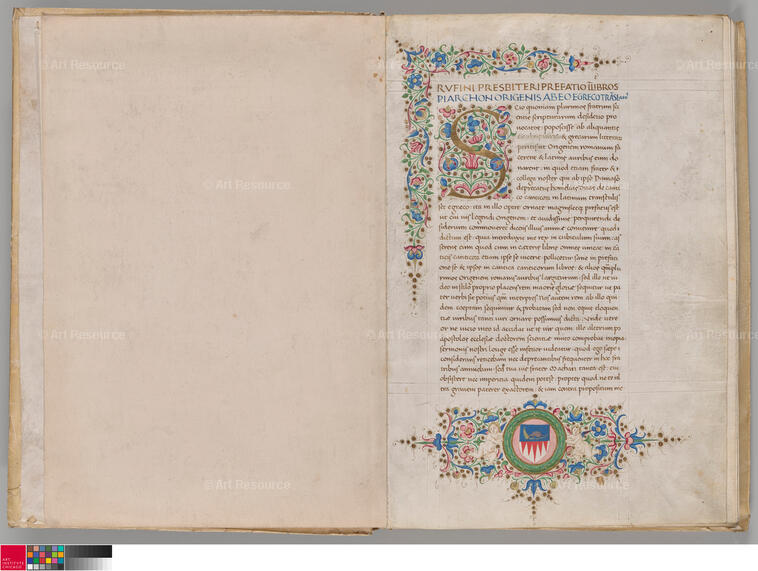 RVFINI PRESBITERI PREFATIO LIBROS
PIARCHON ORIGENIS AB EO E GRECO TRĀSLAT
Scio quoniam plurimos fratrum sci
entie scripturarum desiderio pro
uocatos poposcisse ab aliquantis
& grecarum litterarum
peritissimis Origenem romanum fa
cerent & latinis auribus eum do
narent in quod etiam frater &
collega noster qui ab ipso Damaso
deprecatus homelias duas de canti
co canticorum in latinum transtulis
set e greco ita in illo opere ornate magnificeque prefatus est
ut cui uis legendi Origenem et auidissime perquirendi de
siderium commoueret dicens illius anime conuenire quod
dictum est quia introduxit me rex in cubiculum suum as
serens eum quod cum in ceteris libris omnes uincat in ca
ticis canticorum etiam ipse se uicerit pollicetur sane in prefati
one se & ipsos in cantica canticorum libros & alios
rimos Origenem romanis auribus largiturum sed ille
proprio placens rem maioris glorie sequitur ut pa
ter uerbi sit potius quam interpres Nos autem rem ab illo qui
dem ceptam sequimur & probatam sed non equis eloquen
tie uiribus tanti uiri ornare possumus dicta Vnde uere
or ne uicio meo id accidat ut is uir quem ille alterum post
apostolos ecclesie doctorem scientie merito comprobat inopia
sermonis nostri longe esse inferior uideatur quod ego sepe
considerans reticebam nec deprecantibus frequenter in hoc fra
tribus annuebam sed tua uis frater Machari tanta est cui
obsistere nec imperitia quidem potest propter quod ne te ul
tra grauem paterer exactorem & iam contra propositum me
© Art Resource
© Art Resource
© Art Resource
© Art Resource
© Art Resource
© Art Resource
© Art Resource
© Art Resource
© Art Resource
© Art Resource
© Art Resource
© Art Resource
ART
INSTITVTE
CHICAGO